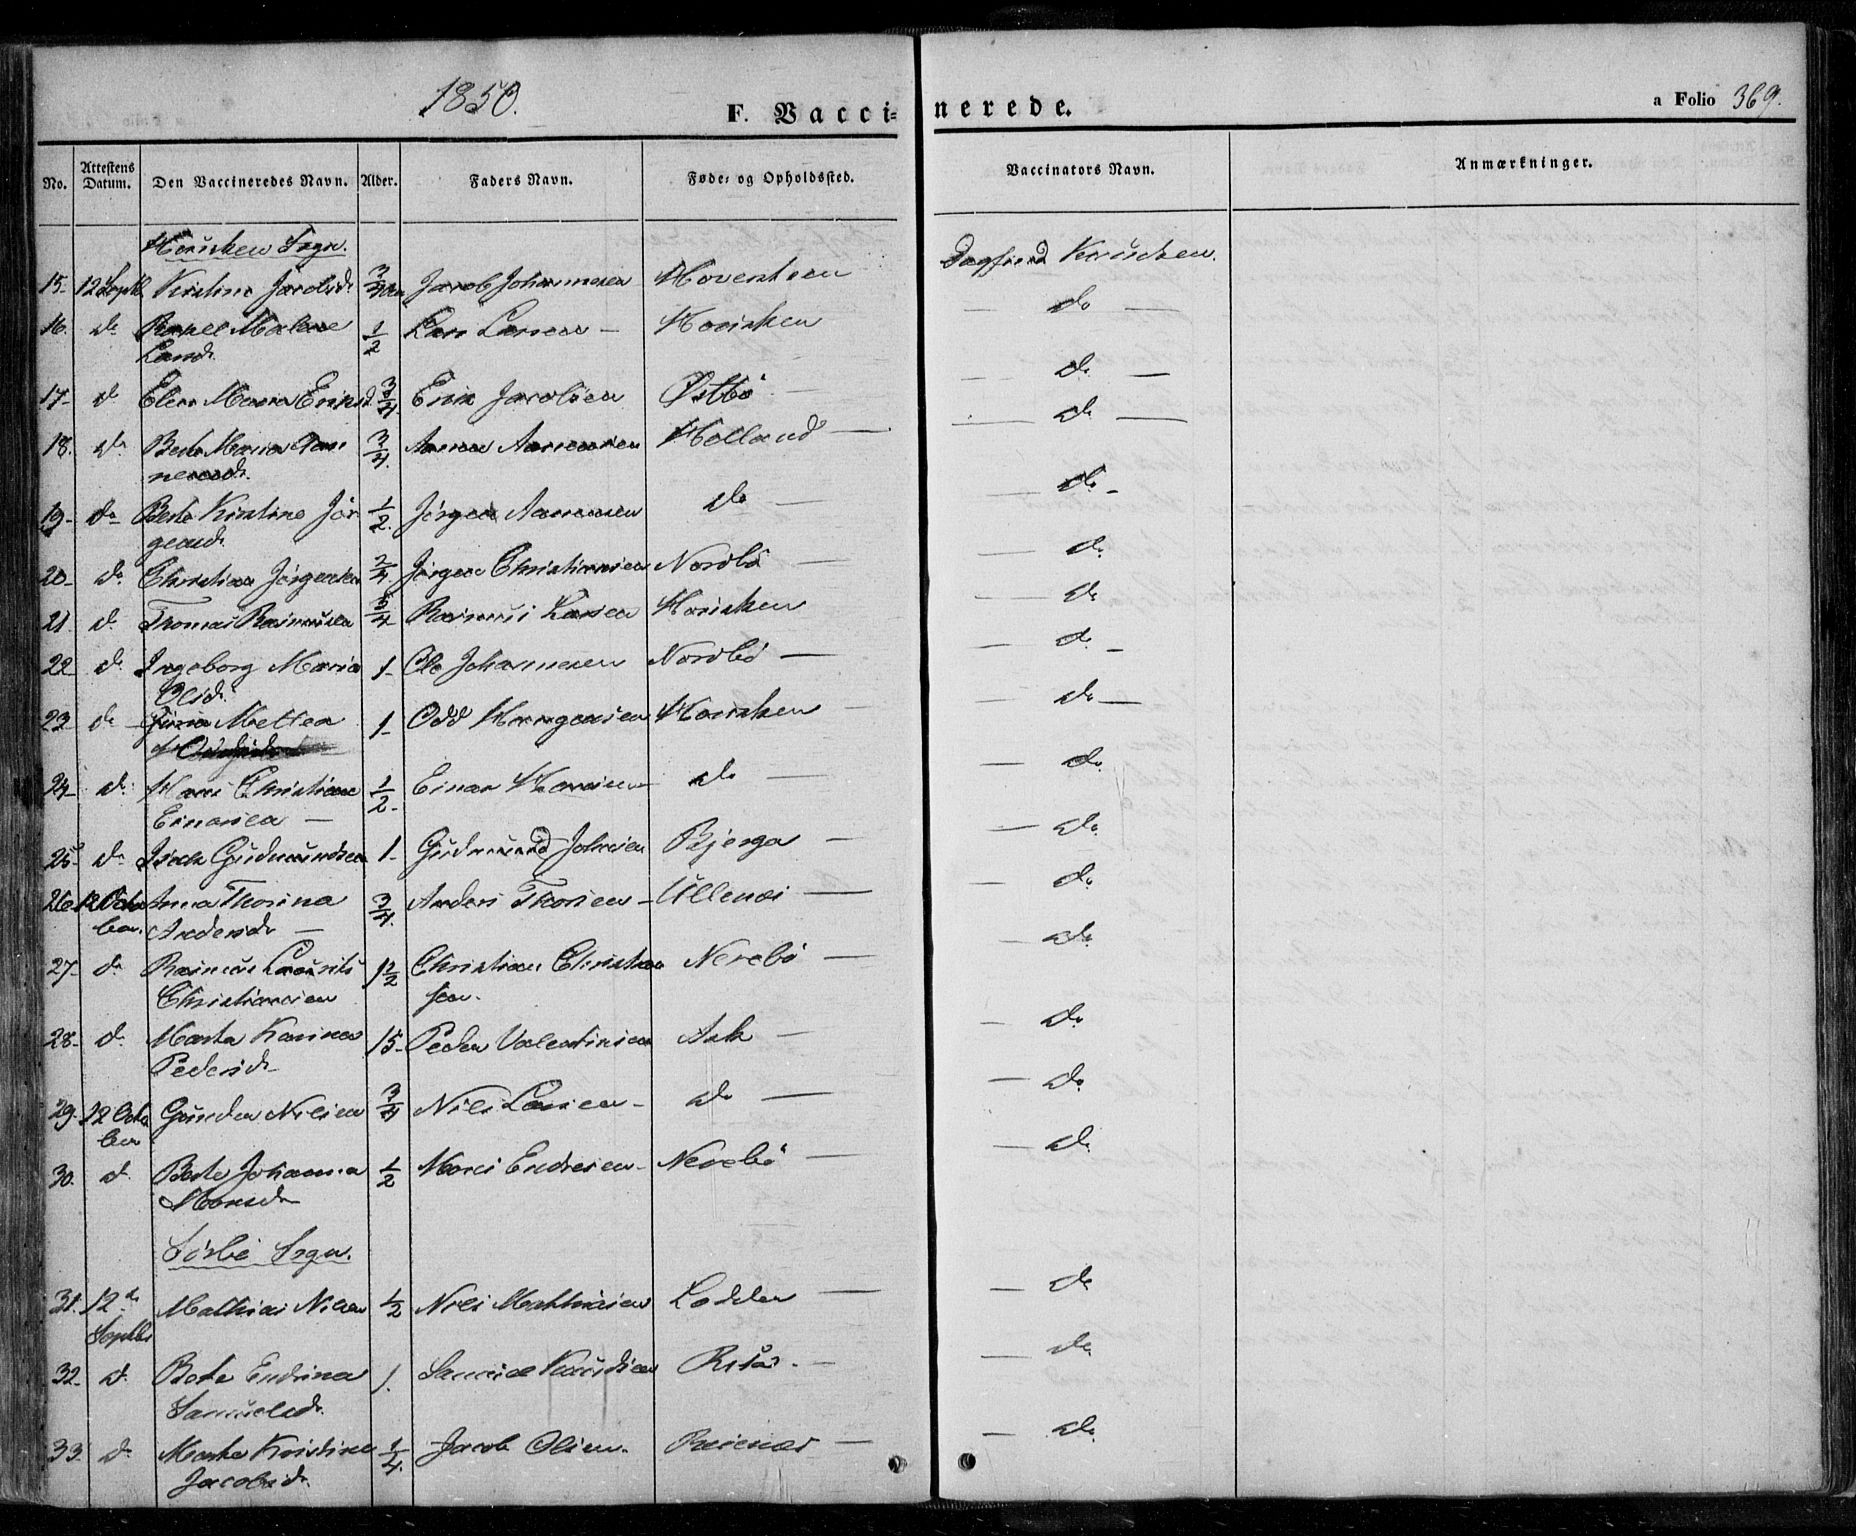 1850.
F. Vacci-nerede.
a Folio 369.
No. Attestens Datum. Den Vaccineredes Navn. Alder. Faders Navn. Føde- og Opholdssted. Vaccinators Navn. Anmærkninger.
Hausken Sogn.
15- 12 Septb. Kristine Jacobsd. 3/4 Jacob Johannesen Hovesteen Dagfind Hausken.
16. do Larsd. 1/2 Lars Larsen - Hausken — do —
17- do Elen Maria Eriksd. 3/4 Erik Jacobsen Østbö — — do —
18. do Berte Maria Aanensd. 3/4. Aanen Aanensen Holland — — do —
19- do Berte Kirstine Jörgensd. 1/2. Jörgen Aanensen do — — do -
20- do Christian Jörgensen 2/4 Jörgen Christiansen Nordbö — — do
21 do Thomas Rasmusen 3/4 Rasmus Larsen Hausken — do
22- do Ingeborg Maria Olsd. 1- Ole Johannesen Nordbö — — do -
23 do Mettea 1- Odd Hausken — — do —
24- do Hans Christian Einarsen — 1/2- Einar Hansen do — — do
25- do Isak Gudmundsen 1- Gudmund Johnsen Bjerga — — do
26 12 October. Anna Thorina Andersd. — 3/4. Anders Thorsen - Ullenæs — — do
27- do Rasmus Laurits Christiansen 1 1/2 Christian Christiansen. Nerebö — — do
28- do Marta Karina Pedersd. 15- Peder Valentinsen Ask — — do
29. 12 October Gunder Nilsen 3/4 Nils Larsen - do — — do
30. do Berte Johanna Monsd. 1/2 Mons Endresen - Nerebö — — do
Sörbö Sogn.
31. 12 de Septbr Mathias Nilsen 1/2 Nils Mathiasen Lodden — — do
32- do Berte Endrina Samuelsd. 1. Samuel Knudsen — — do
33. do Marta Kristine Jacobsd. 1/4. Jacob Olsen. Reienæs — — do